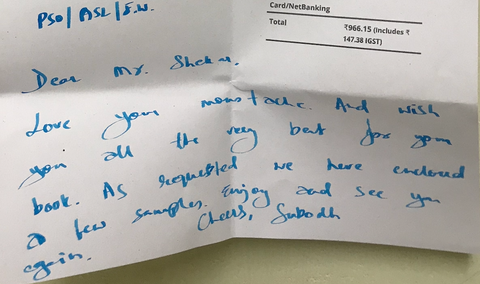 PSO/ASL/F.N.
Card/NetBanking
Total ₹966.15 (Includes ₹
147.38 IGST)
Dear Mr. Shekar.
Love your moustache. And wish
you all the very best for your
book. As requested we have enclosed
a few samples. Enjoy and see you
again. Cheers, Subodh